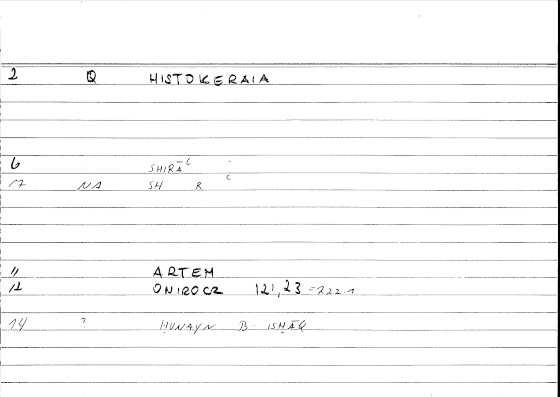 2 Q HISTOKERAIA
6 SHIRĀʿ
12 NA SH R ʿ
11 ARTEM
12 ONIROCR 121,23 =222.1
14 ? ḤUNAYN B ISḤĀQ